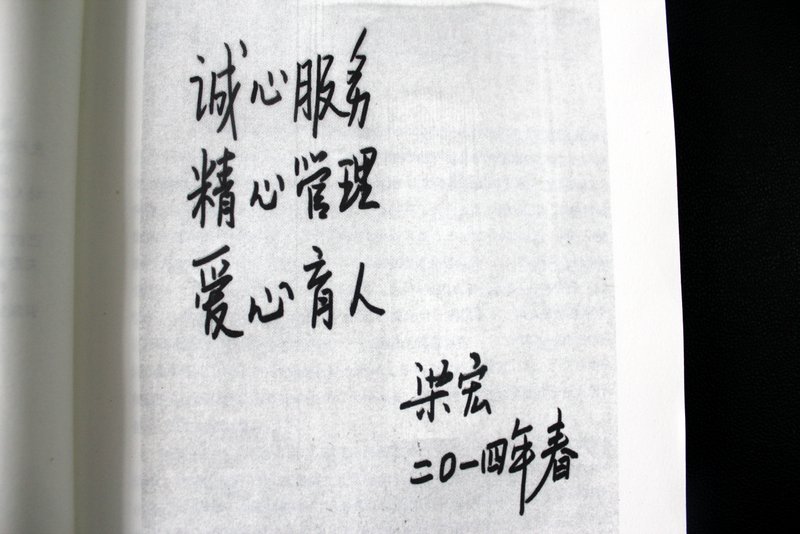 诚心服务
精心管理
爱心育人
梁宏
二〇一四年春